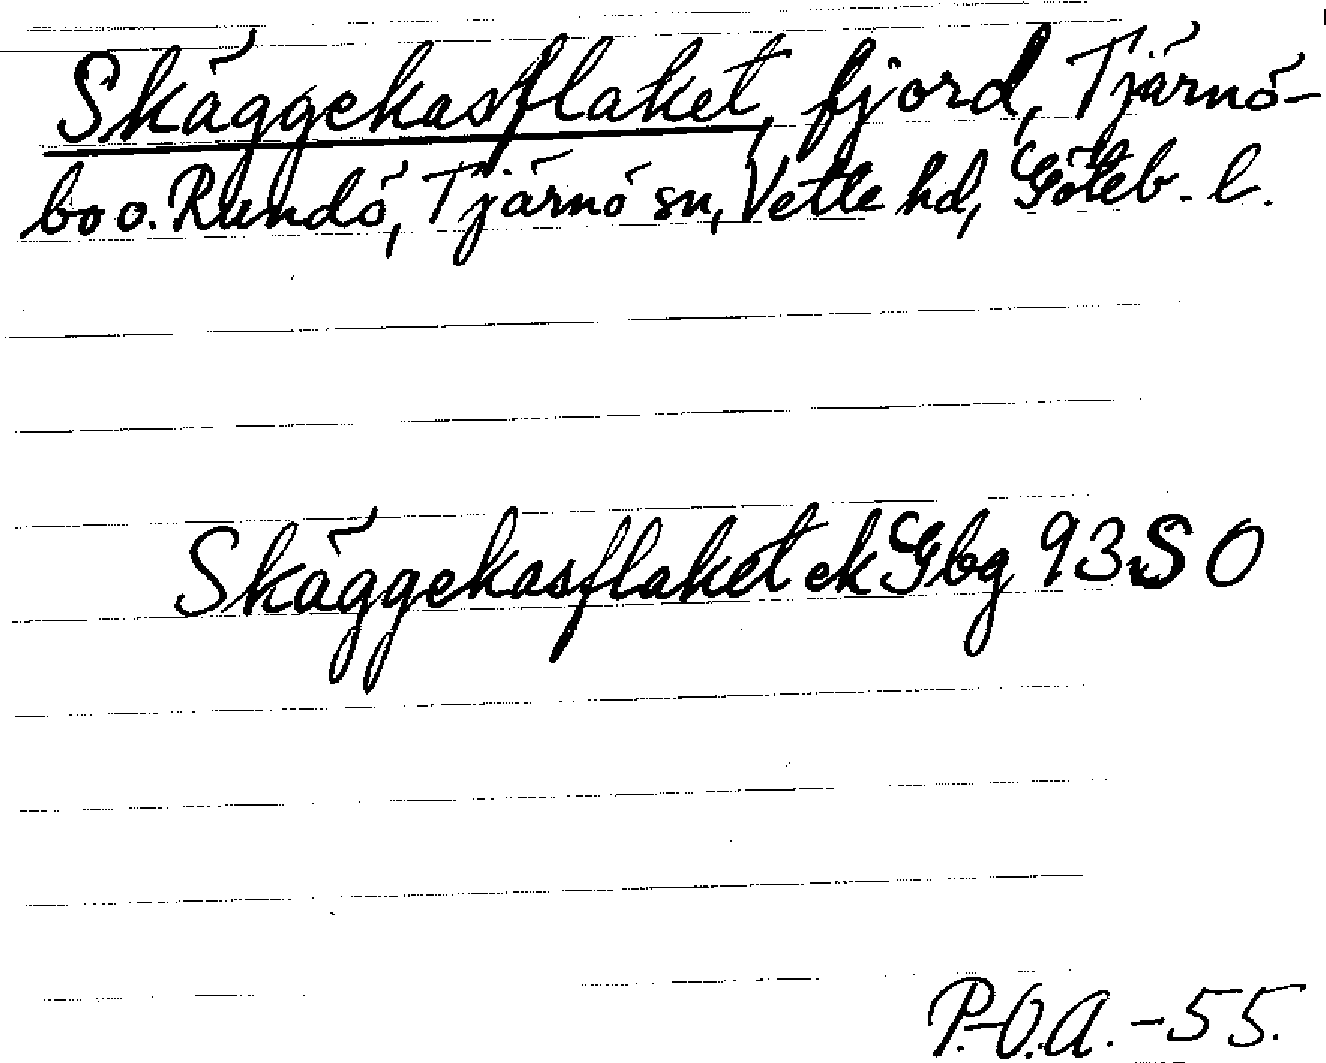 Skäggekasflaket, fjord, Tjärnö-
bo o. Rundö, Tjärnö sn, Vette hd, Göteb. l.
Skäggekasflaket ek Gbg 93 SO
P.-O.A. -55.